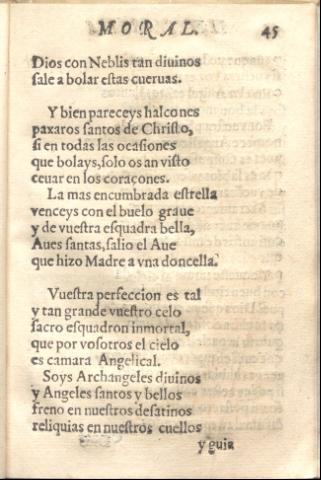 MORAL. 45
Dios con Neblis tan diuinos
sale a bolar estas cueruas.
Y bien pareceys halcones
paxaros santos de Christo,
si en todas las ocasiones
que bolays, solo os an visto
ceuar en los coraçones.
La mas encumbrada estrella
venceys con el buelo graue
y de vuestra esquadra bella,
Aues santas, salio el Aue
que hizo Madre a vna doncella.
Vuestra perfeccion es tal
y tan grande vuestro celo
sacro esquadron inmortal,
que por vosotros el cielo
es camara Angelical.
Soys Archangeles diuinos
y Angeles santos y bellos
freno en nuestros desatinos
reliquias en nuestros cuellos
y guia